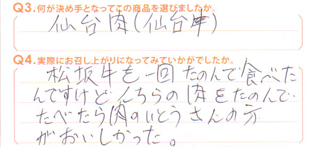 Q3.何が決め手となってこの商品を選びましたか。
仙台肉(仙台牛)
Q4.実際にお召し上がりになってみていかがでしたか。
松坂牛を一回たのんで食べた
んですけどこちらの肉をたのんで
たべたら肉のいとうさんの方
がおいしかった。